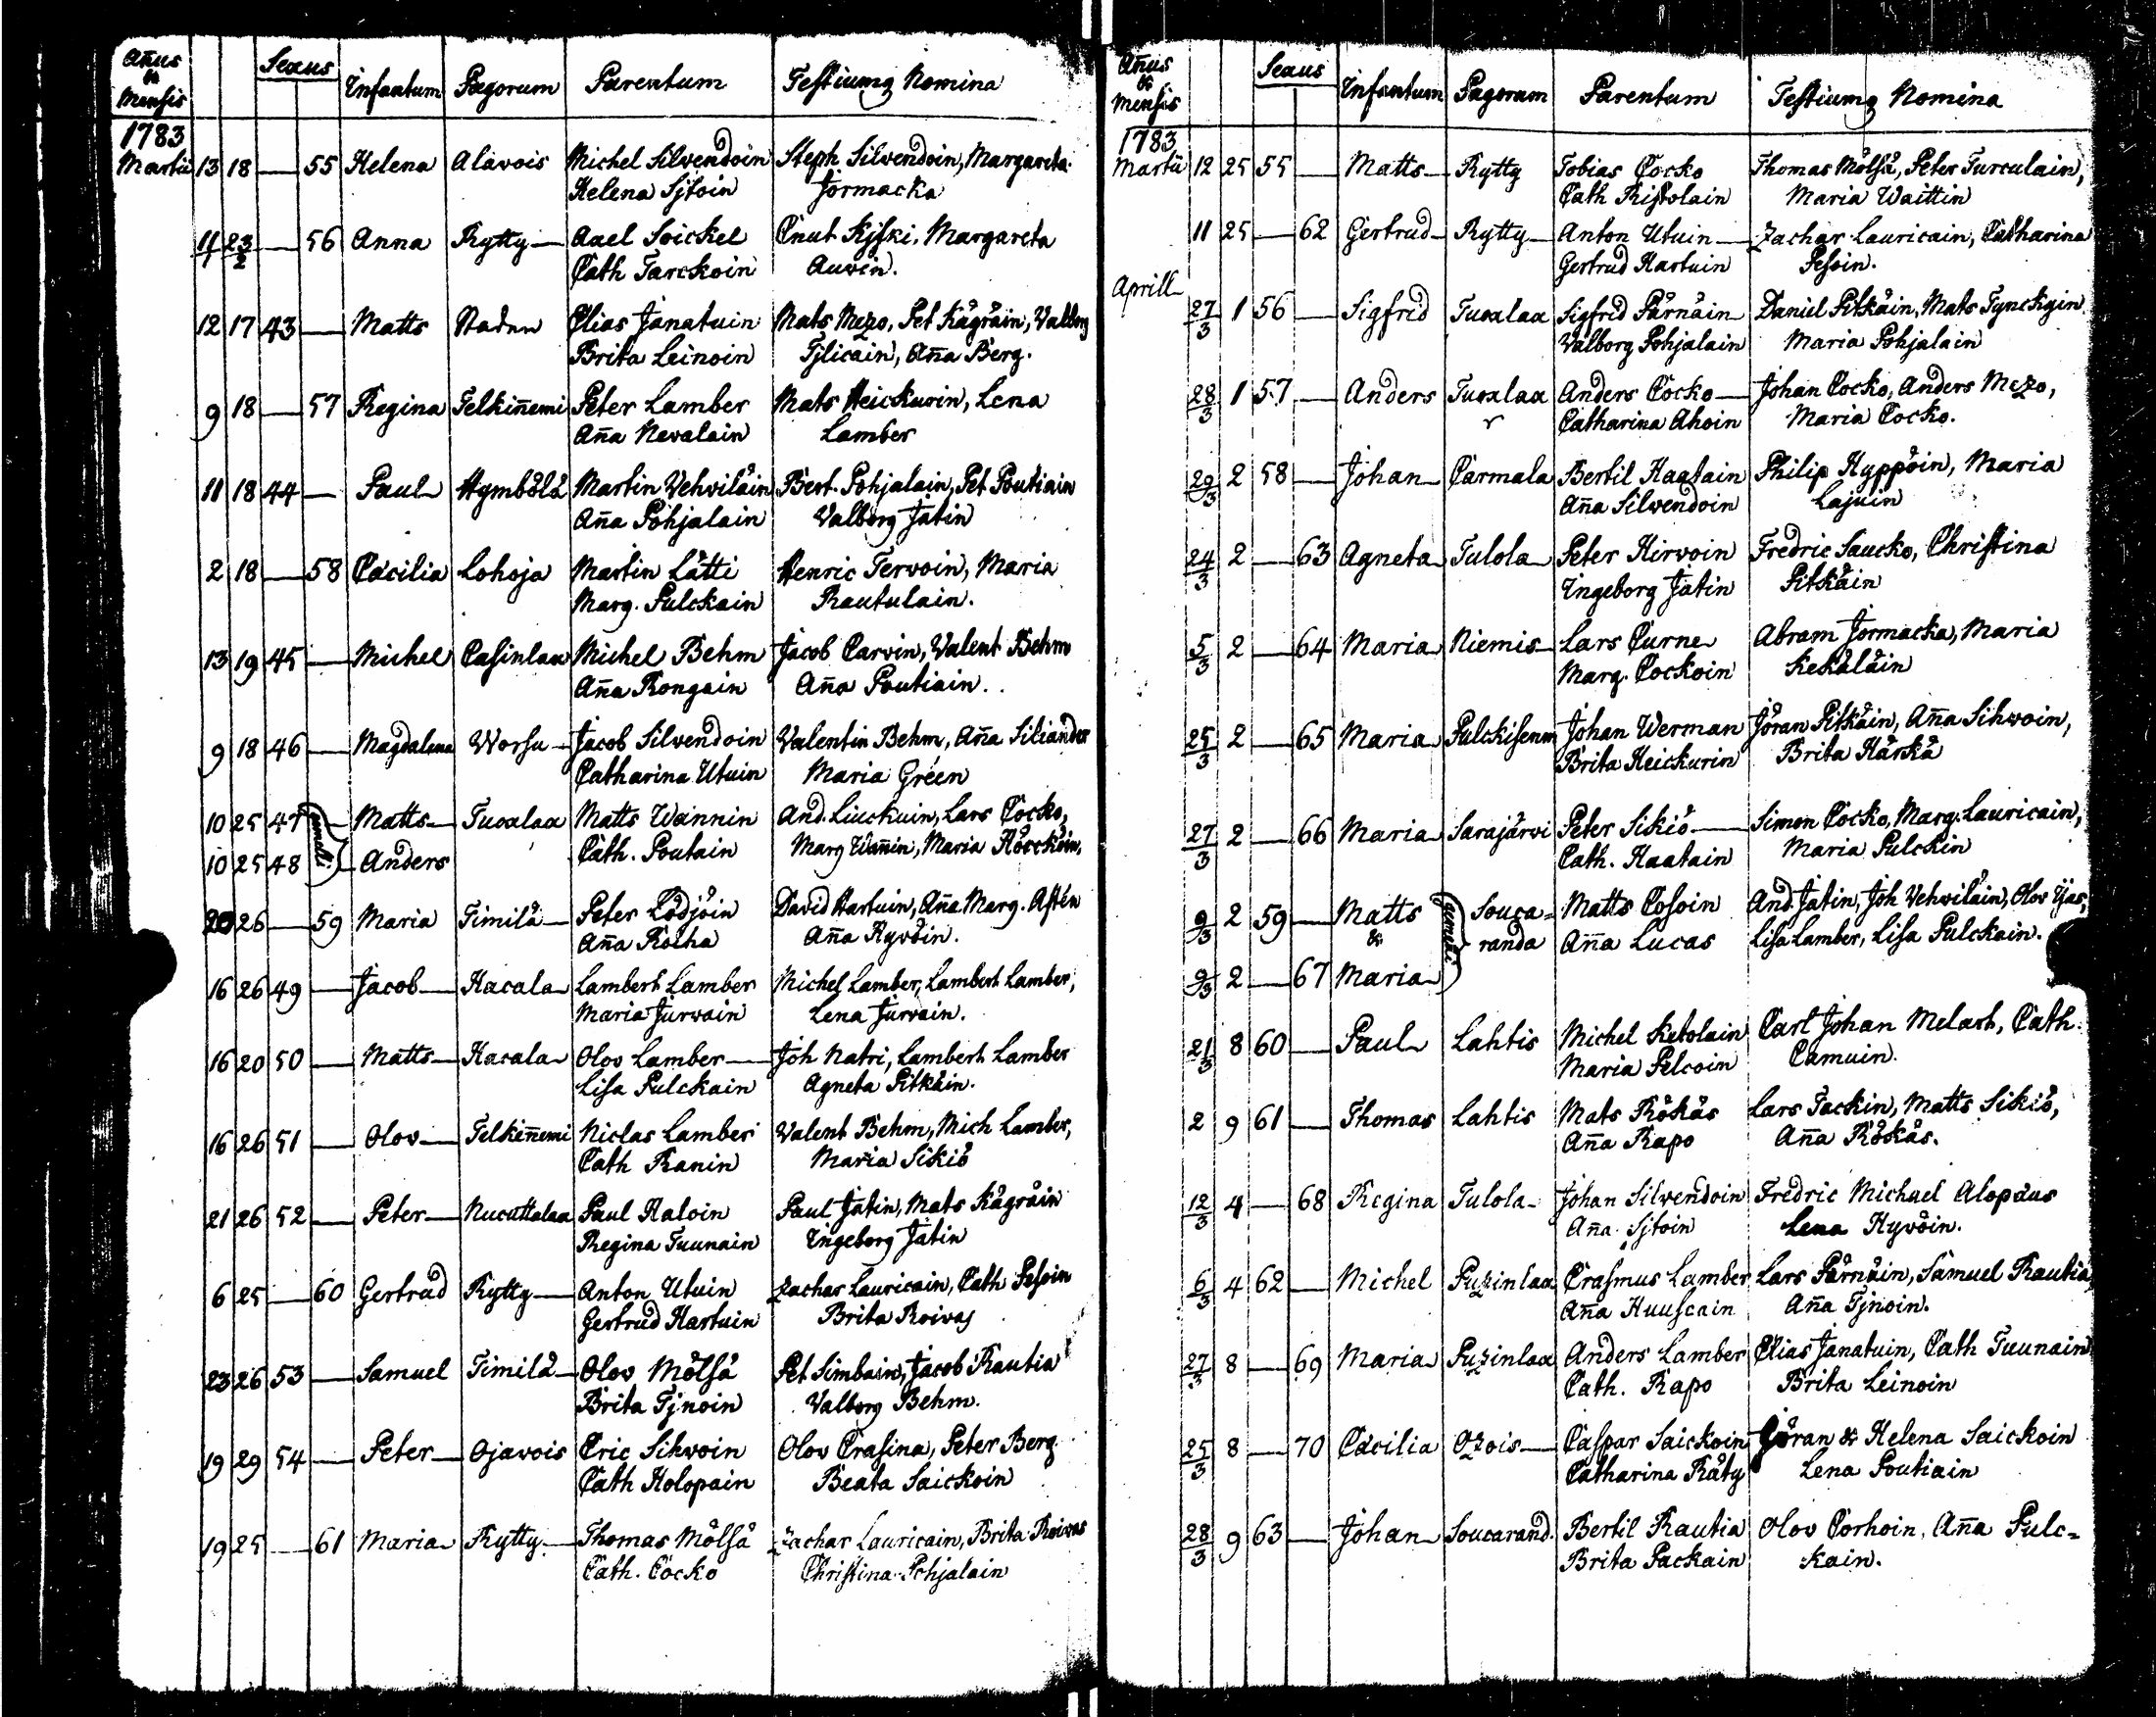 Añus & Mensis Sexus Infantum Pagorum Parentum Testiumq Nomina
1783
Martii 13 18 — 55 Helena Alavois Michel Silvendoin Steph Silvendoin, Margareta
Helena Sjtoin Jormacka
11/1 23/2 — 56 Anna Rytty — Axel Soickel Cnut Kijski, Margareta
Cath Tarckoin Auvin.
12 17 43 — Matts Staden Elias Janatuin Mats Mezo, Pet Kägräin, Valborg
Brita Leinoin Tjlicain, Aña Berg.
9 18 — 57 Regina Telkiñemi Peter Lamber Mats Heickurin, Lena
Aña Nevalain Lamber
11 18 44 — Paul Hymbölä Martin Vehviläin Bert. Pohjalain, Pet Poutiain
Aña Pohjalain Valborg Jatin
2 18 — 58 Cæcilia Lohoja Martin Lätti Henric Tervoin, Maria
Marg. Pulckain Rautulain.
13 19 45 — Michel Casinlax Michel Behm Jacob Carvin, Valent Behm
Aña Rongain Aña Poutiain.
9 18 46 — Magdalena Worsu — Jacob Silvendoin Valentin Behm, Aña Siliander
Catharina Utuin Maria Green
10 25 47 gemelli — Matts — Tuxalax Matts Wannin And. Liuckuin, Lars Cocko,
Cath. Poutain Marg Wañin, Maria Höcköin,
10 25 48 — Anders
20 26 — 59 Maria Timilä — Peter Lödjöin David Hartuin, Aña Marg. Astén
Aña Rotha Aña Hyvöin.
16 26 49 — Jacob — Hacala — Lambert Lamber Michel Lamber, Lambert Lamber,
Maria Jurvain Lena Jurvain.
16 20 50 — Matts — Hacala — Olov Lamber — Joh Natri, Lambert Lamber
Lisa Pulckain Agneta Pitkäin.
16 26 51 — Olov — Telkiñemi Niclas Lamber Valent Behm, Mich Lamber,
Cath Ranin Maria Sikiö
21 26 52 — Peter — Nucuttalax Paul Haloin Paul Jatin, Mats Kägräin
Regina Tuunain Ingeborg Jatin
6 25 — 60 Gertrud Rytty — Anton Utuin Zachar Lauricain, Cath Pesoin
Gertrud Hartuin Brita Roivas
23 26 53 — Samuel Timilä — Olov Mölsä Pet Simbain, Jacob Rautia
Brita Tjnoin Valborg Behm.
19 29 54 — Peter — Ojavois Eric Sihvoin Olov Crasina, Peter Berg
Cath Holopain Beata Saickoin
19 25 — 61 Maria — Rytty — Thomas Mölsä Zachar Lauricain, Brita Roivas
Cath. Cocko Christina Pohjalain
Añus & Mensis Sexus Infantum Pagorum Parentum Testiumq Nomina
1783
Martii 12 25 55 — Matts — Rytty Tobias Cocko Thomas Mölsä, Peter Turculain,
Cath Ristolain Maria Waittin
11 25 — 62 Gertrud — Rytty — Anton Utuin — Zachar Lauricain, Catharina
Gertrud Hartuin Pesoin.
Aprill
27/3 1 56 — Sigfrid Tuxalax Sigfrid Pärnäin — Daniel Pitkäin, Mats Tynckgin
Valborg Pohjalain Maria Pohjalain
28/3 1 57 — Anders Tuxalax Anders Cocko — Johan Cocko, Anders Mezo,
Catharina Ahoin Maria Cocko.
29/3 2 58 — Johan — Carmala Bertil Haatain Philip Hyppöin, Maria
Aña Silvendoin Lajuin
24/3 2 — 63 Agneta — Tulola — Peter Hirvoin Fredric Saucko, Christina
Ingeborg Jatin Pitkäin
5/3 2 — 64 Maria — Niemis — Lars Curne Abram Jormacka, Maria
Marg. Cockoin Kekäläin
25/3 2 — 65 Maria — Pulckisenm Johan Werman Jöran Pitkäin, Aña Sihvoin,
Brita Heickurin Brita Härkä
27/3 2 — 66 Maria — Sarajärvi Peter Sikiö — Simon Cocko, Marg. Lauricain,
Cath. Haatain Maria Pulckin
9/3 2 59 — Matts gemelli Souca- Matts Cosoin And. Jatin, Joh Vehviläin, Olov Ijäs,
& randa Aña Lucas Lisa Lamber, Lisa Pulckain.
9/3 2 — 67 Maria
21/3 8 60 — Paul Lahtis Michel Ketolain Carl Johan Melart, Cath.
Maria Pelcoin Camuin.
2 9 61 — Thomas Lahtis Mats Rökäs Lars Tackin, Matts Sikiö,
Aña Rapo Aña Rökäs.
12/3 4 — 68 Regina Tulola — Johan Silvendoin Fredric Michael Alopæus
Aña Sjtoin Lena Hyvöin.
6/3 4 62 — Michel Puzinlax Erasmus Lamber Lars Pärnäin, Samuel Rautia
Aña Huuscain Aña Tjnoin.
27/3 8 — 69 Maria — Puzinlax Anders Lamber Elias Janatuin, Cath Tuunain
Cath. Rapo Brita Leinoin
25/3 8 — 70 Cæcilia Ozois — Caspar Saickoin Jöran & Helena Saickoin
Catharina Räty Lena Poutiain
28/3 9 63 — Johan — Soucarand. Bertil Rautia Olov Corhoin, Aña Pulc-
Brita Packain kain.